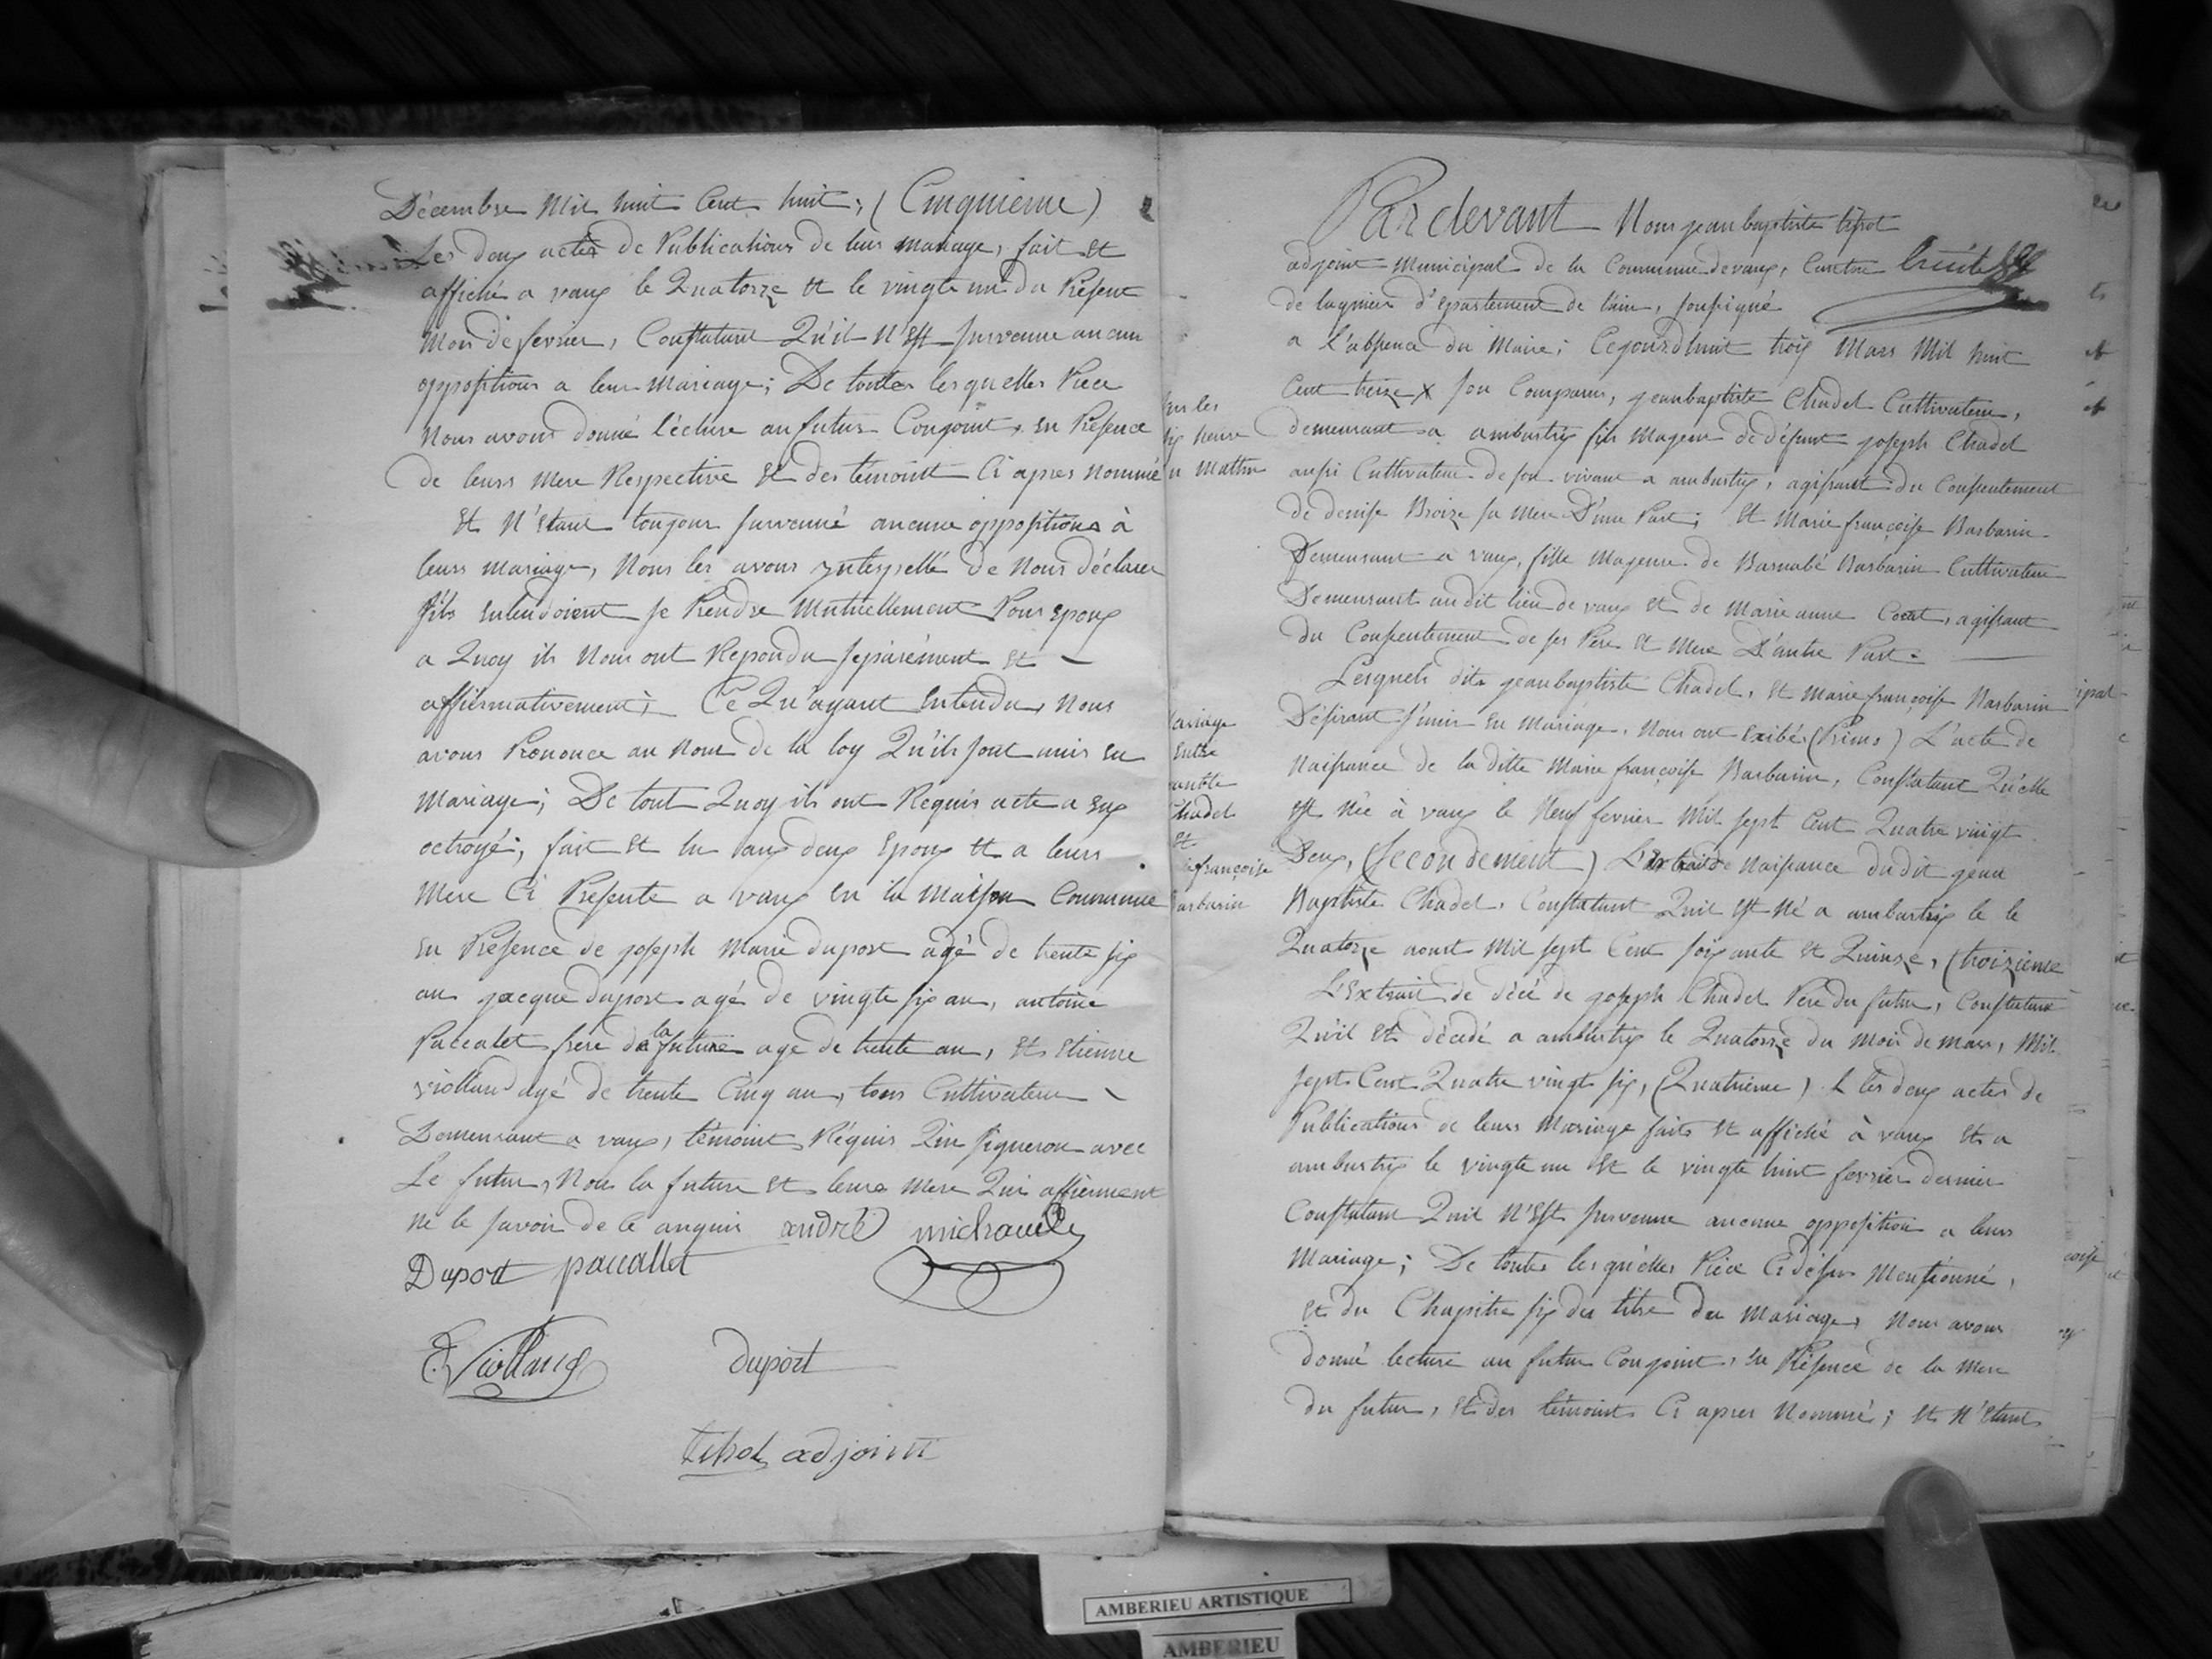 Décembre Mil huit Cent huit; (Cinquieme)
Les deux actes de Publications de leur mariage, fait et
affiché a vaux le Quatorze et le vingte un du Présent
Mois de fevrier, Constatant Qu'il N'est survenue aucun
oppositions a leur Mariage; De toutes lesquelles Piece
Nous avons donné lécture au futur Conjoint, en Présence
de leurs Mere Respective et des témoint Ci apres nommé
et N'étant toujour survenué aucune oppositions à
leurs mariage, Nous les avons yntespellé de Nous déclarer
s'ils entendoient se Prendre Mutuellement Pour epoux
a Quoy ils Nous ont Répondu séparément et
affirmativement; Ce Qu'ayant entendu, Nous
avons Prononce au Nom de la loy Qu'ils sont unis en
Mariage; De tout Quoy ils ont Requis acte a eux
octroyé; fait et lu aux deux epoux et a leurs
Mere Ci Présente a vaux en la Maison Commune
en Présence de joseph Marie duport agé de trente six
an jacque duport agé de vingte six an, antoine
Paccalet frere de la future agé de trente an, et etienne
violland agé de trente Cinq an, tous Cultivateur
Demeurant a vaux, témoint Réquis Qui signeron avec
Le futur, Non la future et leurs Mere Qui affirment
ne le savoir de ce anquis andré michaud
Duport paccallet
E. Violland duport
tihol adjoint
Par devant Nous jean baptiste tihol
adjoint Municipal de la Commune de vaux, Canton
de lagnieu d'épartement de l'ain, soussigné
a l'absence du Maire; Cejourdhuit trois Mars Mil huit
Cent treize X son Comparus, jean baptiste Chadel Cultivateur,
sur les
six heure
du Mattin
demeurant a ambutrix fils Mageur de défunt joseph Chadel
aussi Cultivateur de son vivant a ambutrix, agissant du Consentement
de denise Broize sa Mere D'une Part; et Marie françoise Barbarin
Demeurant a vaux, fille Mageure de Barnabé Barbarin Cultivateur
Demeurant audit lieu de vaux et de Marie anne Cocat, agissant
du Consentement de ses Pere et Mere D'autre Part.
Lesquels dits jean baptiste Chadel, et Marie françoise Barbarin
Mariage
entre
Chadel
et
françoise
Barbarin
Désirant s'unir en Mariage, Nous ont exibé (Primo) L'acte de
Naissance de la ditte Marie françoise Barbarin, Constatant Qu'elle
est Née à vaux le Neuf fevrier Mil sept Cent Quatre vingt
Deux, (secondement) L'extrait de naissance dudit jean
Baptiste Chadel, Constatant Quil est Né a ambutrix le le
Quatorze aoust Mil sept Cent soixante et Quinze, (troizieme
L'extrait de décé de joseph Chadel Pere du futur, Constatant
Qu'il est décédé a ambutrix le Quatorze du Mois de Mars, Mil
sept Cent Quatre vingt six, (Quatrieme) L les deux actes de
Publications de leurs Mariage faits et affiché à vaux et a
ambutrix le vingte un et le vingte huit fevrier dernier
Constatant Quil N'est survenue aucune opposition a leurs
Mariage; De toutes lesquelles Piéce Ci dessus Mentionné,
et du Chapitre six du titre du Mariage, Nous avons
donné lecture au futur Conjoint, en Présence de la Mere
du futur, et des témoint Ci apres Nommé; et N'étant
AMBERIEU ARTISTIQUE
AMBERIEU